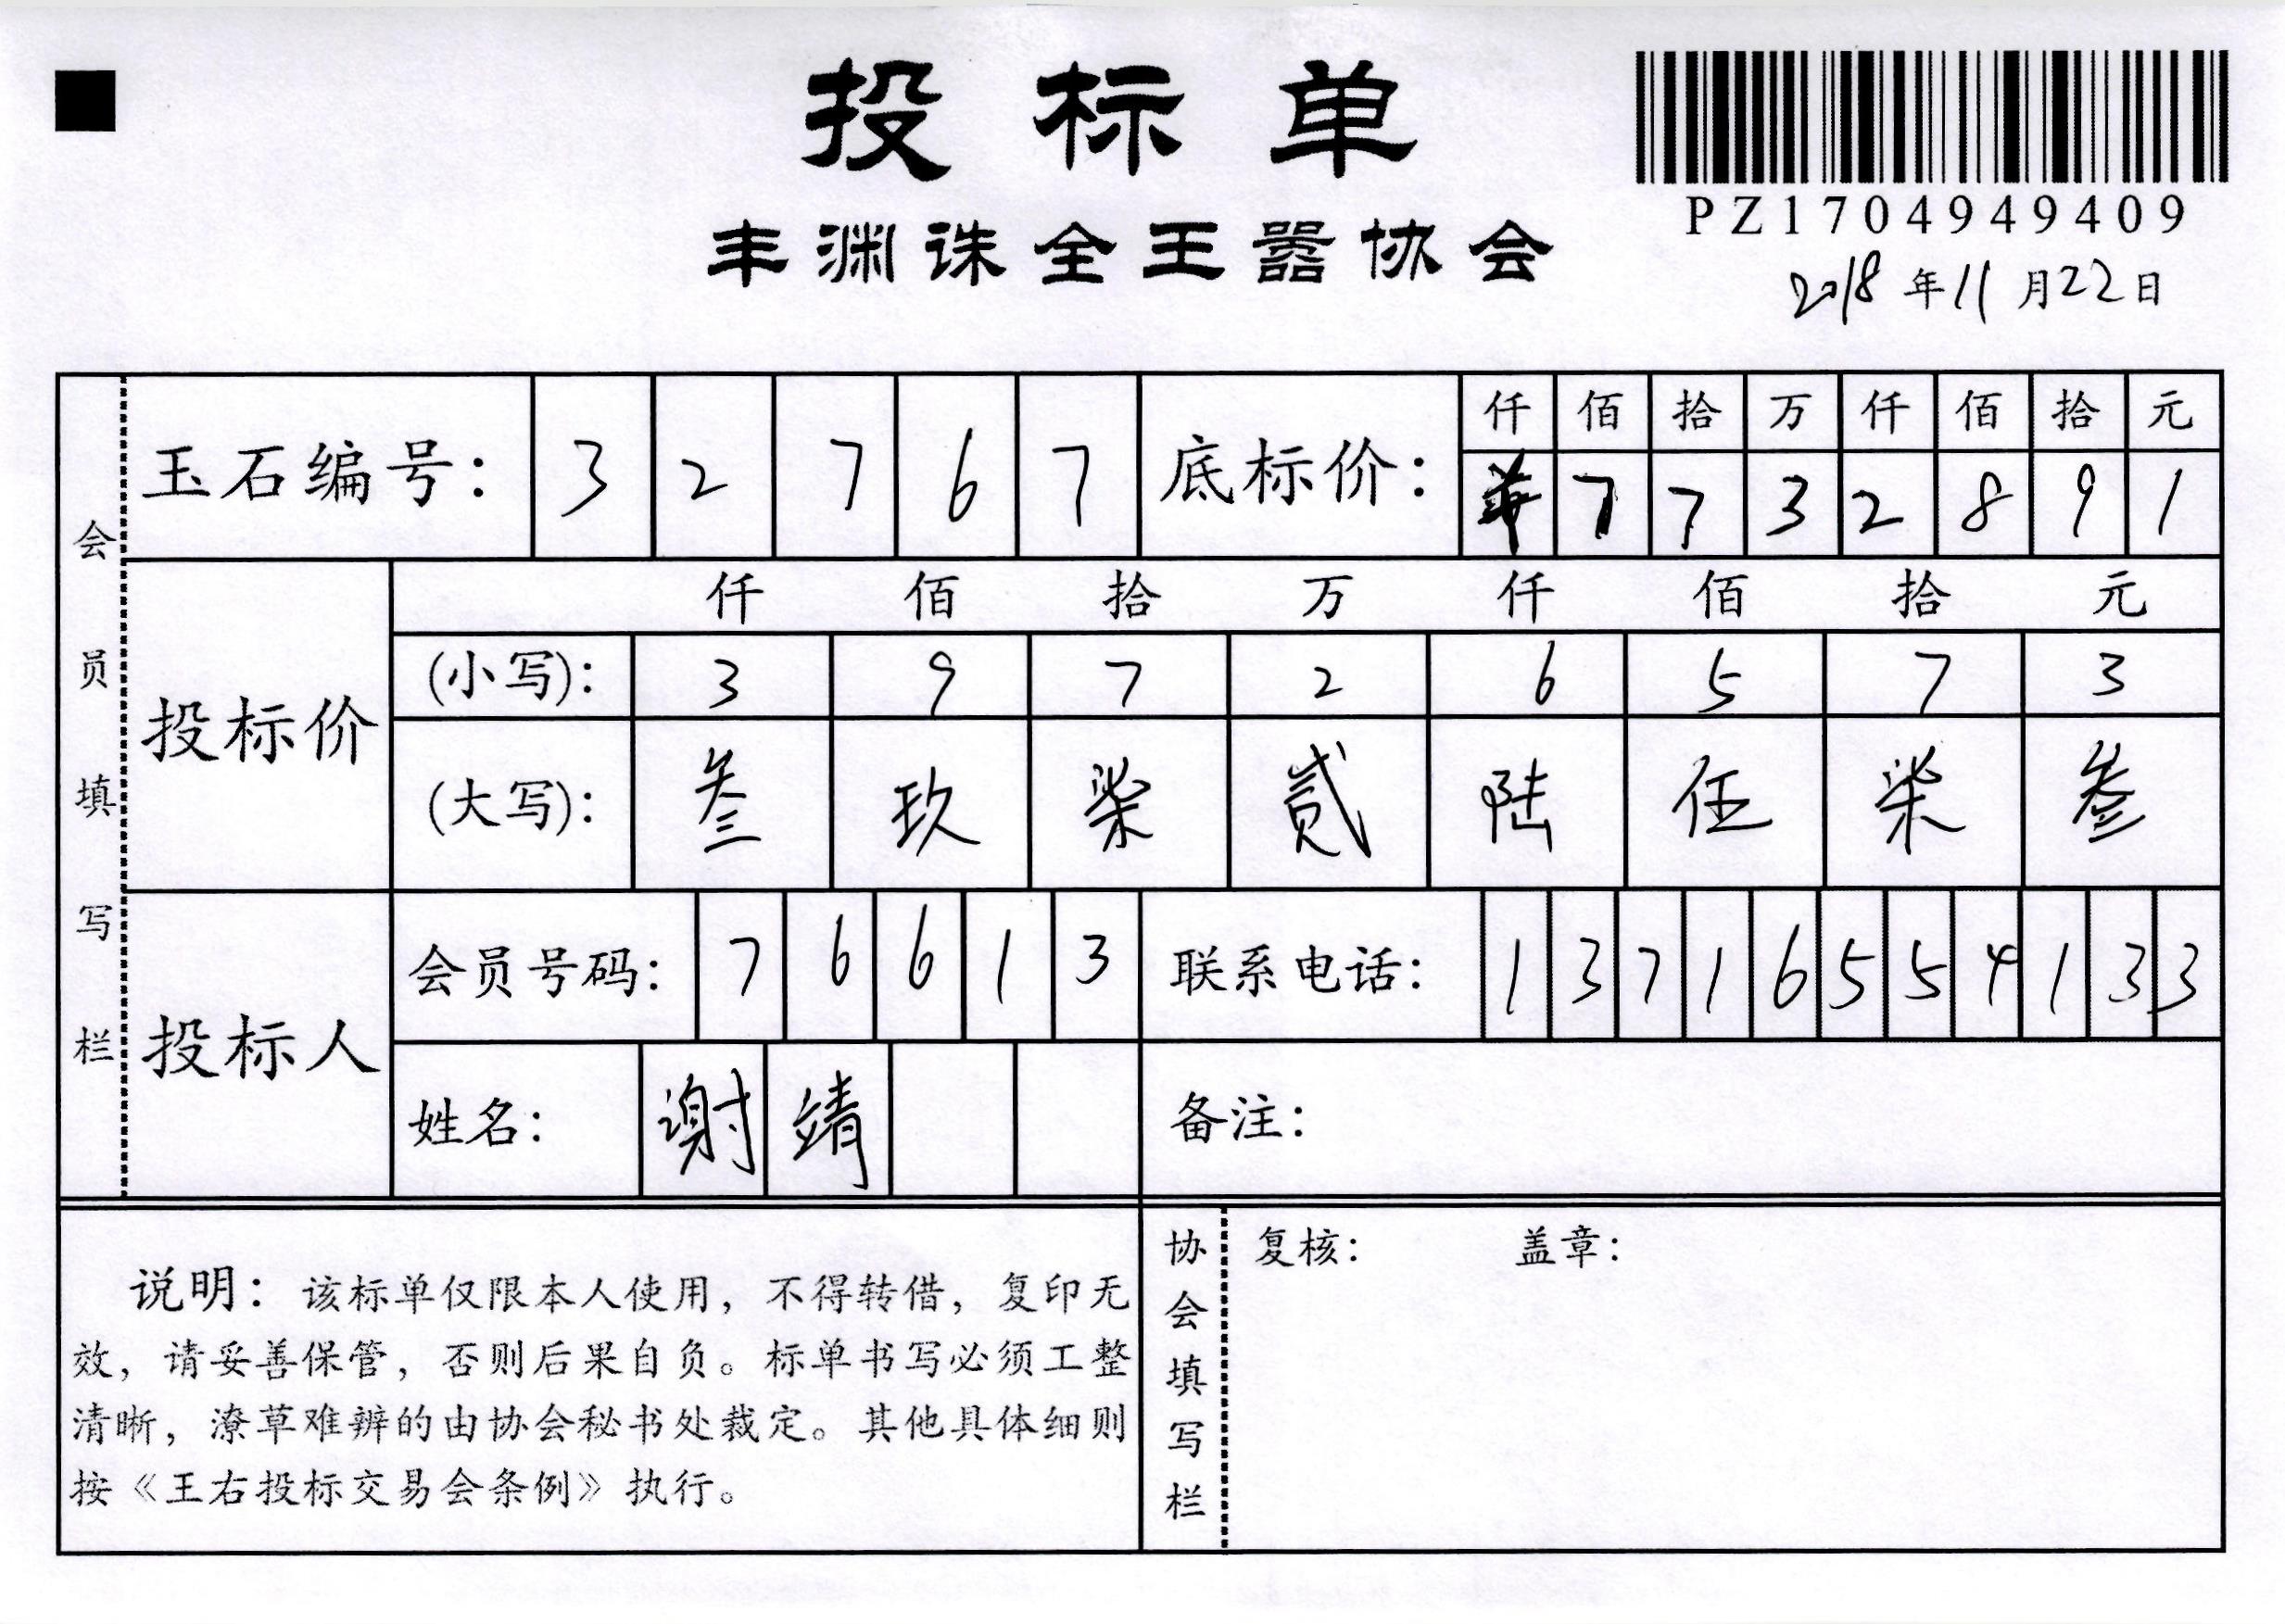 投标单
丰渊诛全王嚣协会
PZ1704949409
2018年11月22日
会员填写栏
玉石编号: 3 2 7 6 7
底标价: 仟 佰 拾 万 仟 佰 拾 元
7 7 3 2 8 9 1
投标价
仟 佰 拾 万 仟 佰 拾 元
(小写): 3 9 7 2 6 5 7 3
(大写): 叁 玖 柒 贰 陆 伍 柒 叁
投标人
会员号码: 7 6 6 1 3
联系电话: 1 3 7 1 6 5 5 4 1 3 3
姓名: 谢 靖
备注:
说明: 该标单仅限本人使用, 不得转借, 复印无
效, 请妥善保管, 否则后果自负。标单书写必须工整
清晰, 潦草难辨的由协会秘书处裁定。其他具体细则
按《王右投标交易会条例》执行。
协会填写栏
复核: 盖章: